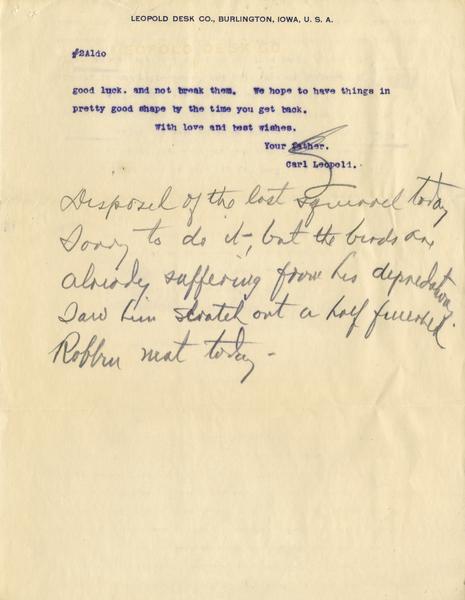 LEOPOLD DESK CO., BURLINGTON, IOWA, U. S. A.
#2Aldo
good luck. and not break them. We hope to have things in
pretty good shape by the time you get back.
With love and best wishes.
Your father.
Carl Leopold.
Disposed of the last squirrel today
Sorry to do it, but the birds are
already suffering from his depredations.
Saw him scratch out a half finished
Robbin nest today -